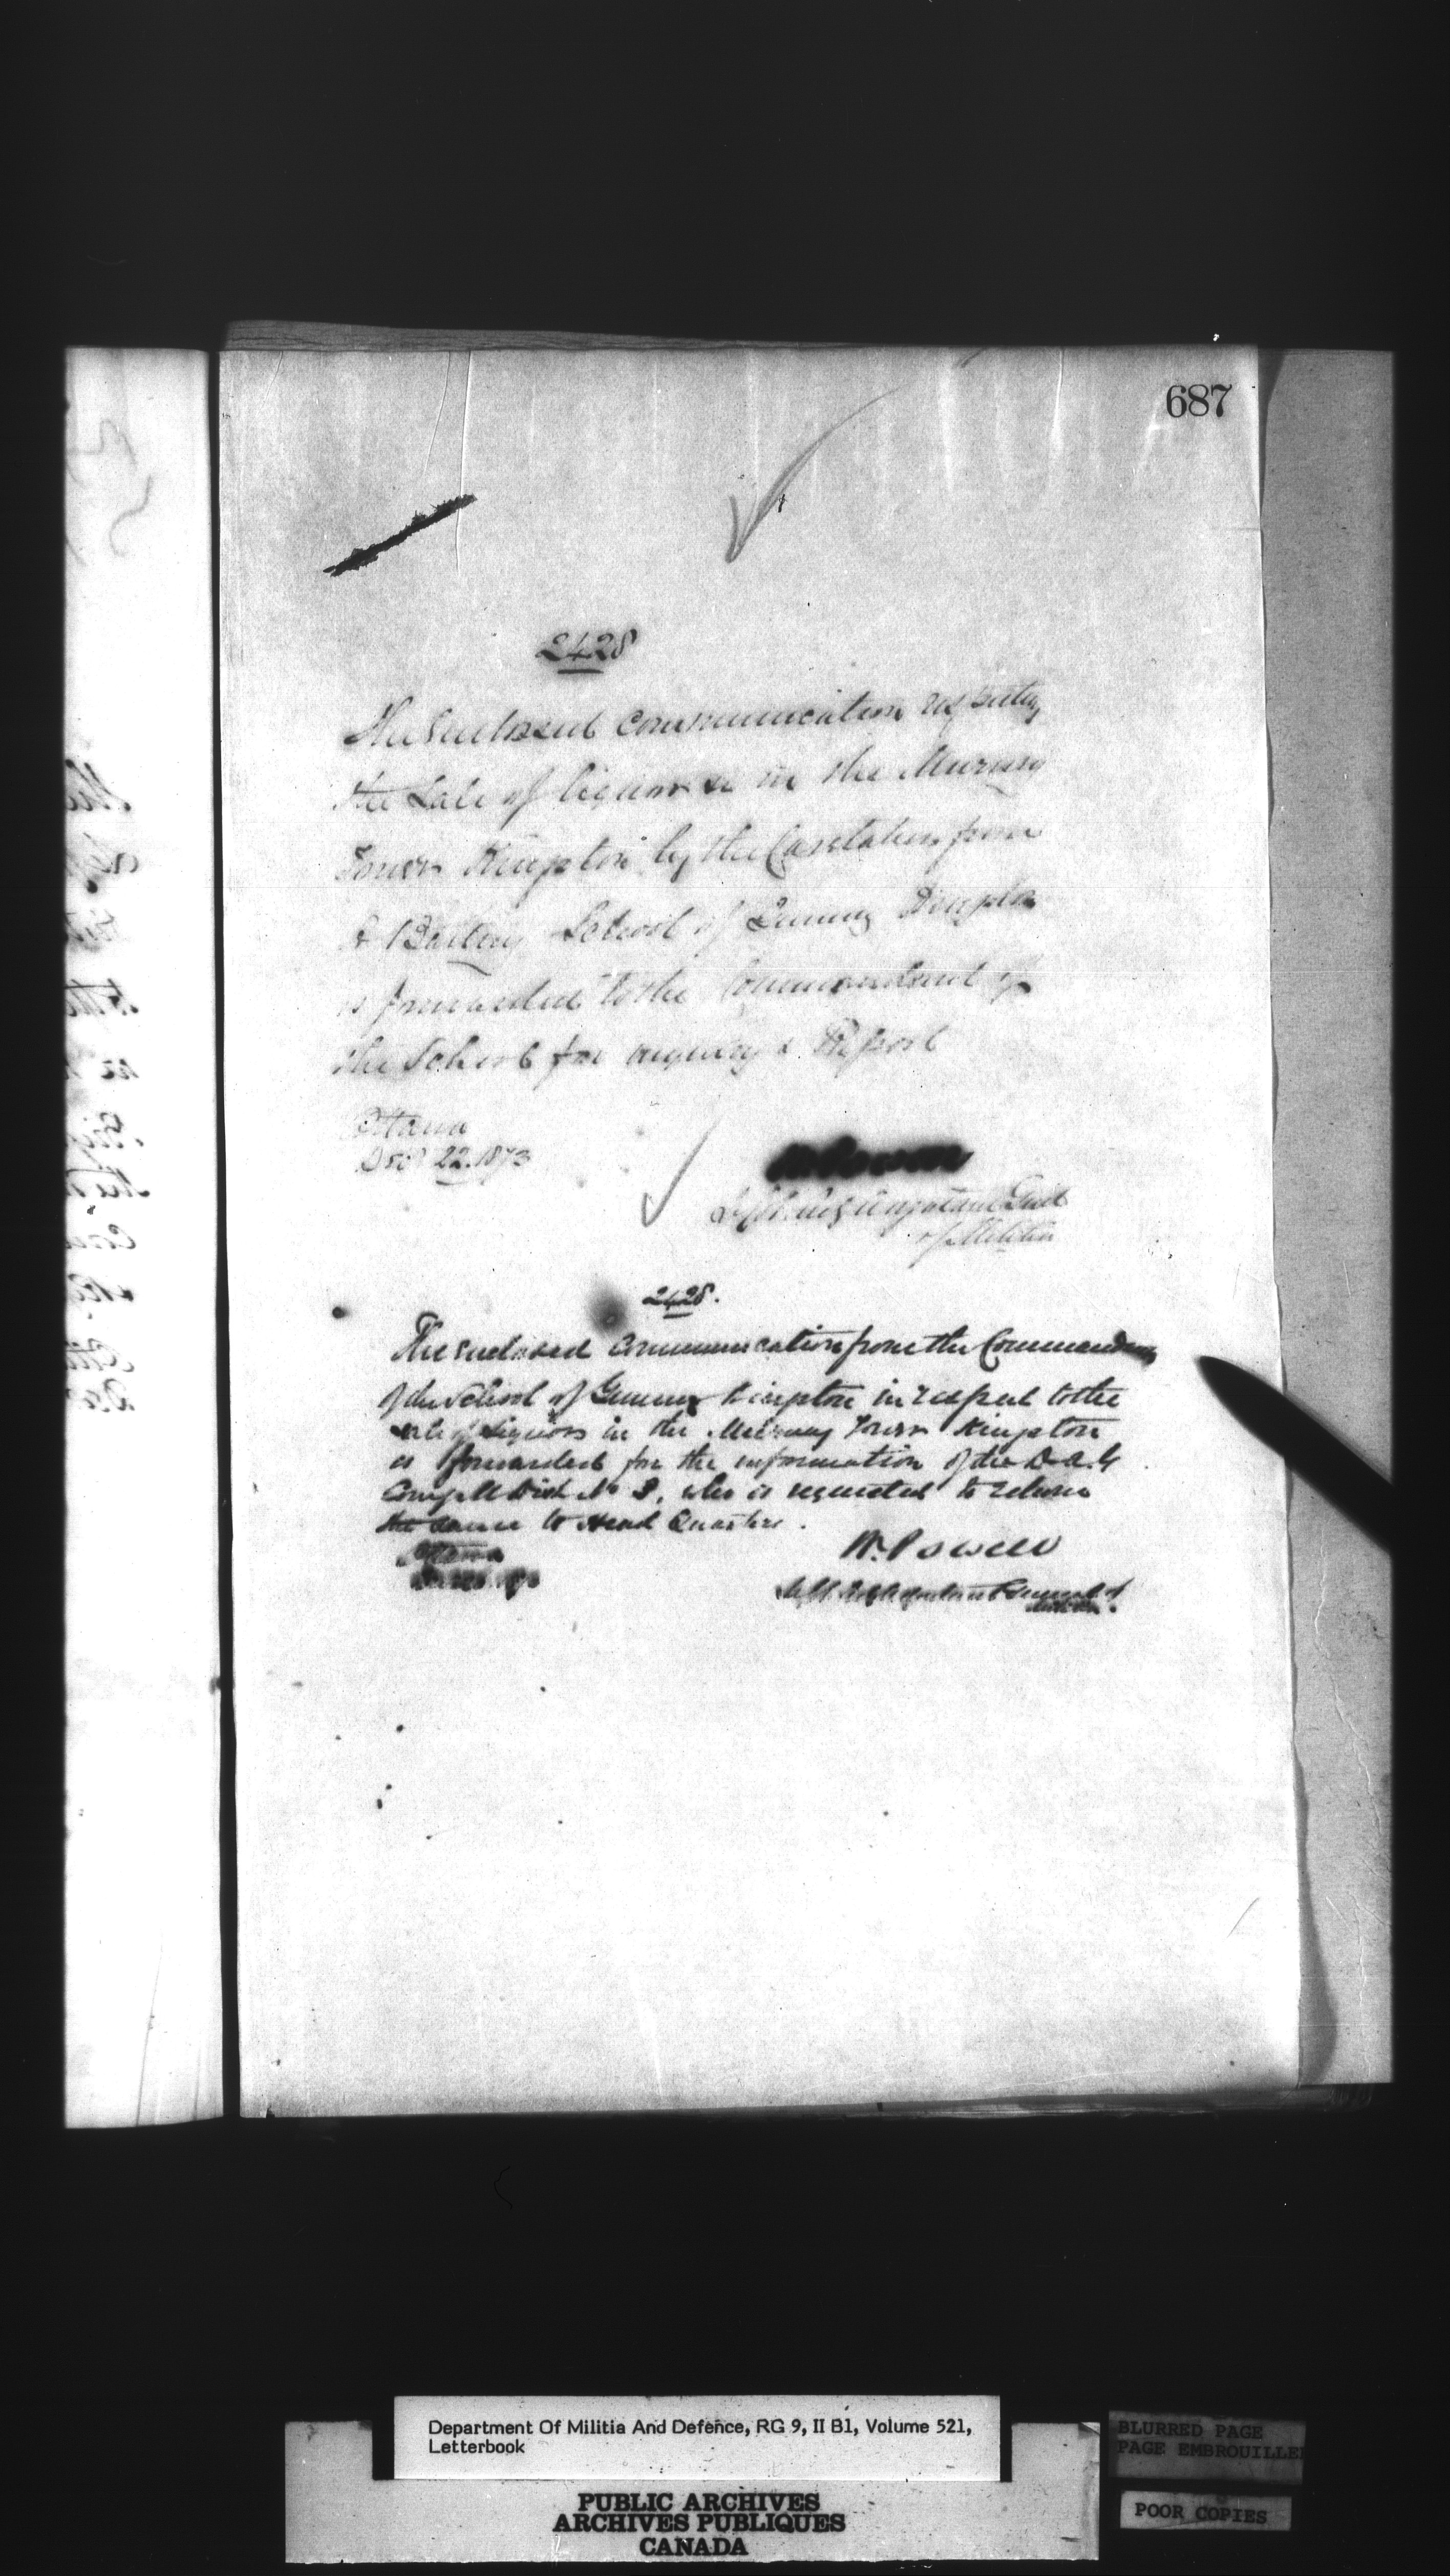 687
2428
The Enclosed communication respecting
the Sale of liquors &c in the Murney
Tower Kingston by the Caretaker from
A Battery School of Gunnery Kingston
is forwarded to the Commandant of
the School for inquiry & Report
Ottawa
Dec 22. 1873
W Powell
Adjutant Genl
of Militia
2428.
The enclosed Communication from the Commandant
of the School of Gunnery Kingston in respect to the
sale of Liquors in the Murney Tower Kingston
is forwarded for the information of the D.A.G
Comg Mil Dist No 3, who is requested to return
the same to Head Quarters.
Ottawa
W. Powell
Adjutant General of
Militia.
Department Of Militia And Defence, RG 9, II B1, Volume 521,
Letterbook
PUBLIC ARCHIVES
ARCHIVES PUBLIQUES
CANADA
BLURRED PAGE
PAGE EMBROUILLE
POOR COPIES